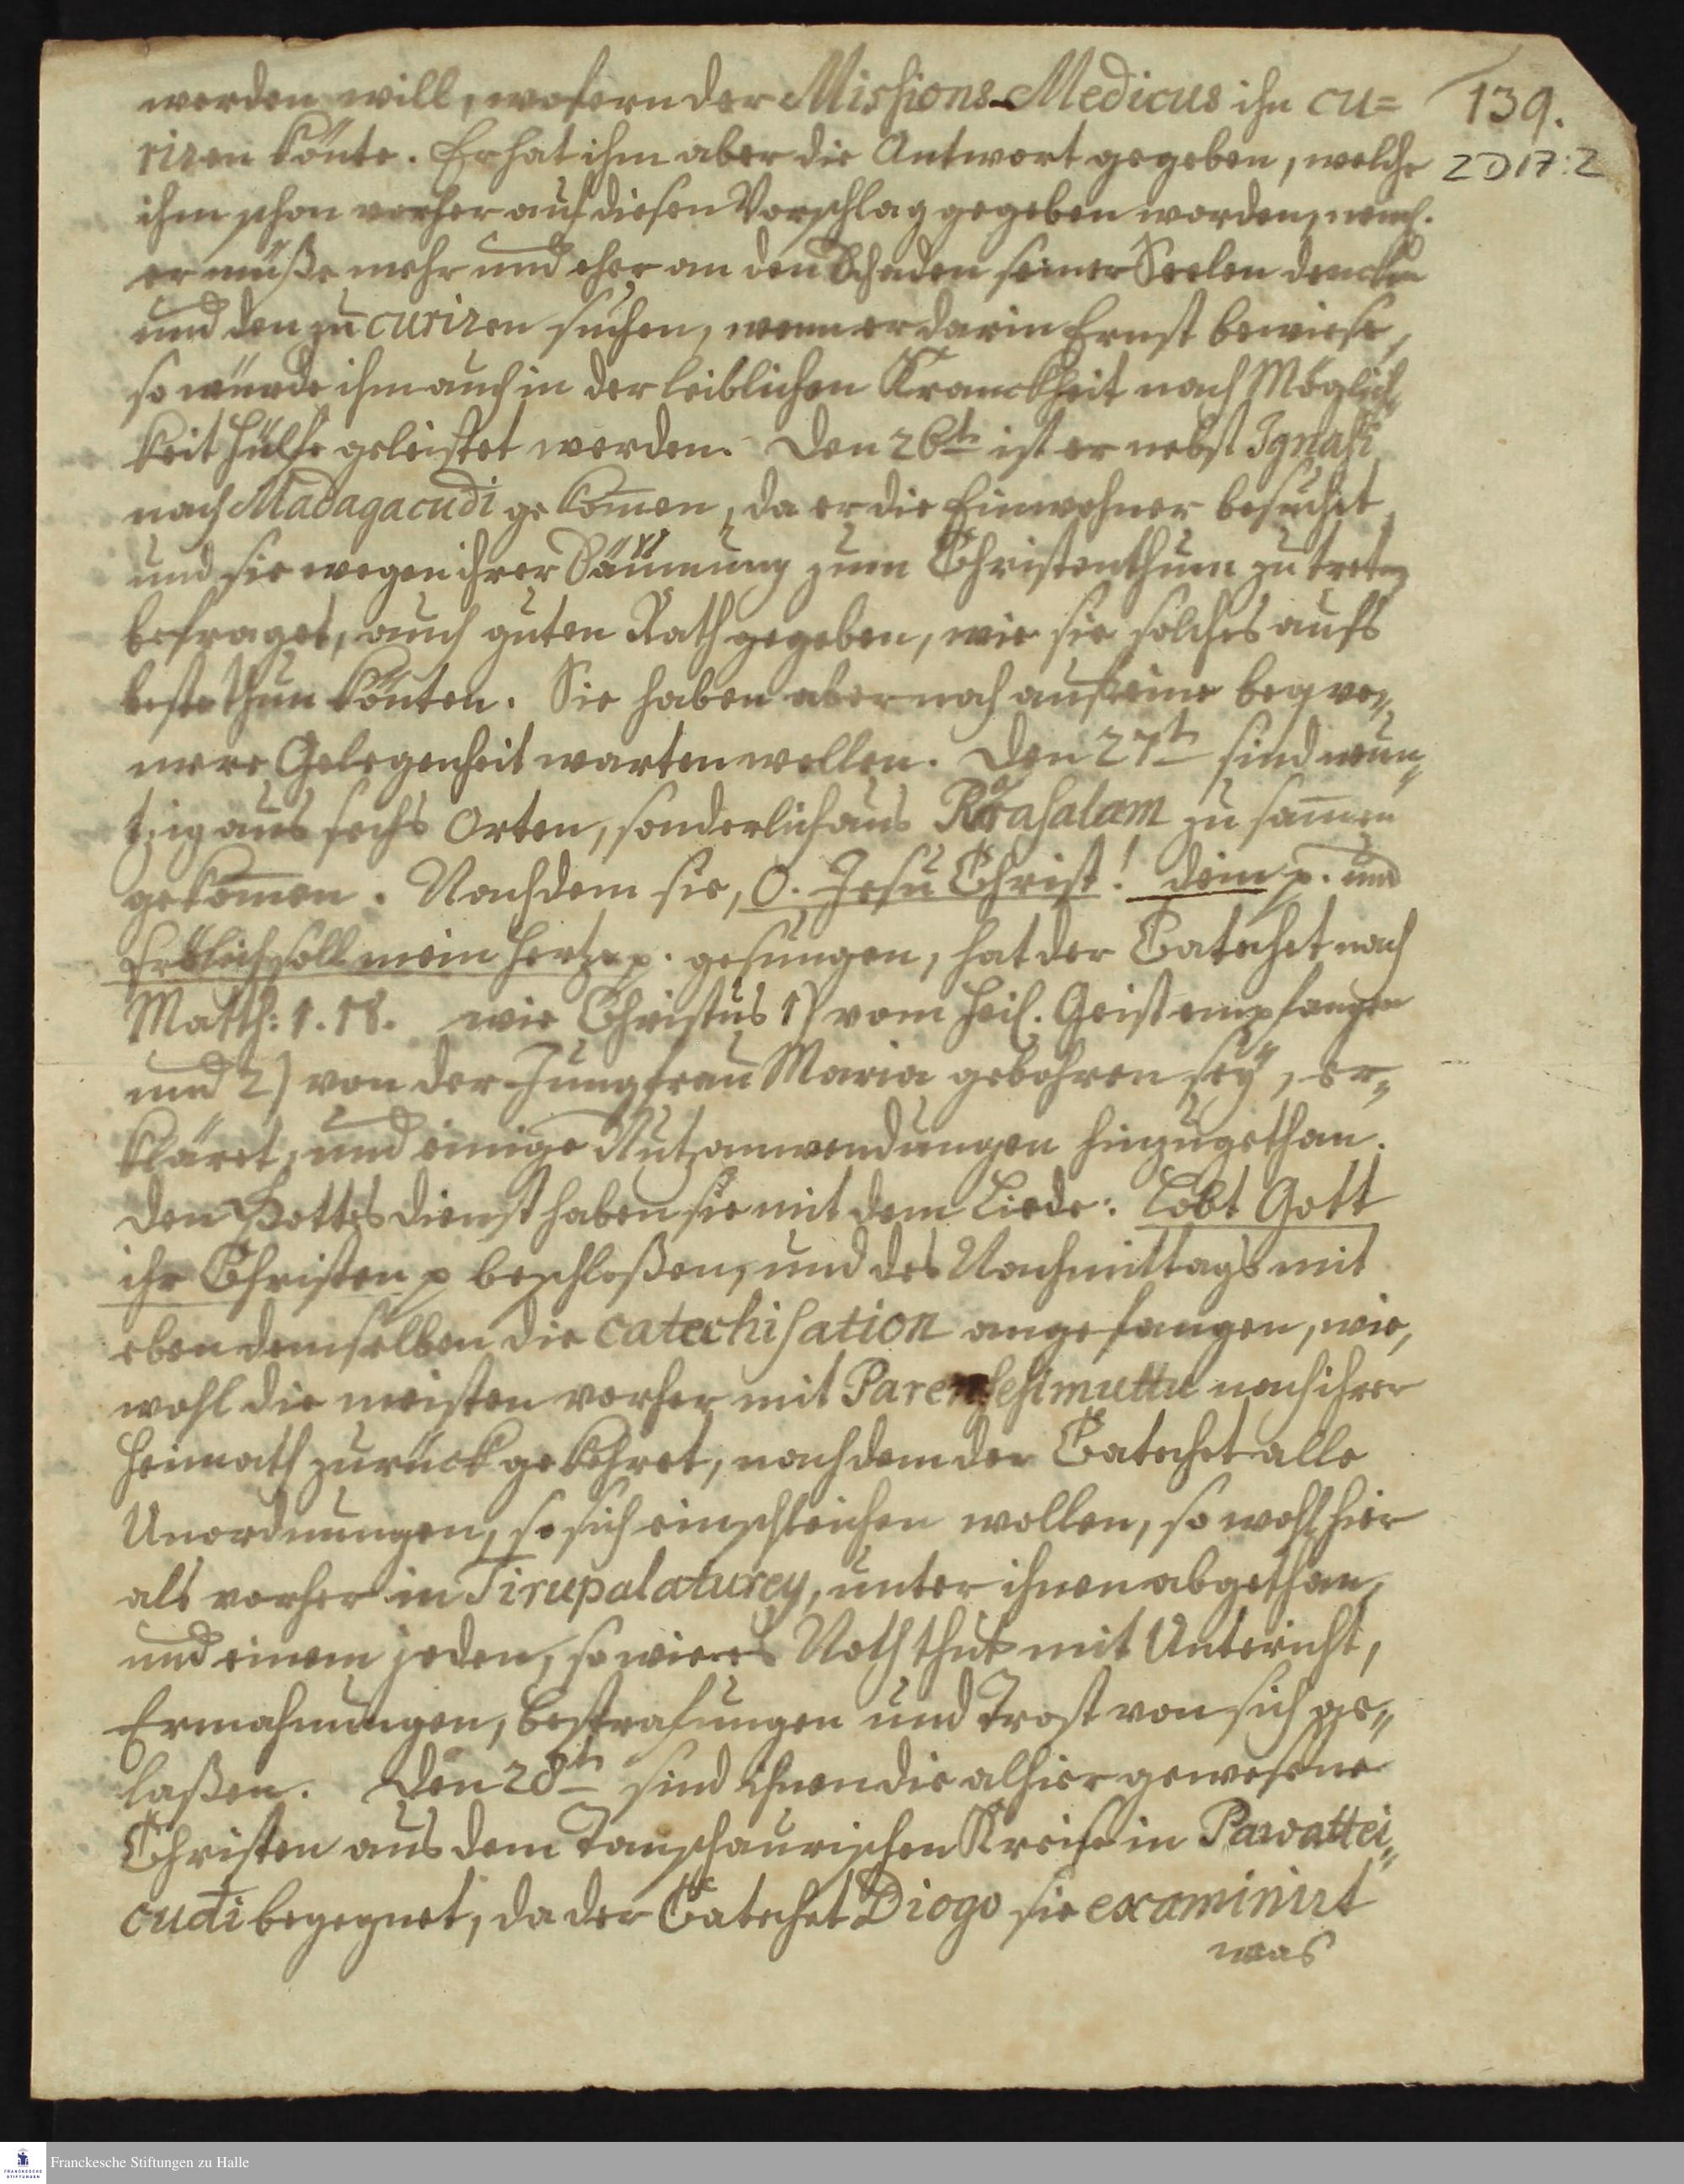 werden will, wofern der Missions-Medicus ihn cu=
riren könte. Er hat ihm aber die Antwort gegeben, welche
ihm schon vorher auf diesen Vorschlag gegeben worden, neml.
er müße mehr und eher an den Schaden seiner Seelen dencken
und den zu curiren suchen, wenn er darin Ernst bewiese,
so würde ihm auch in der leiblichen Kranckheit nach Möglich-
keit Hülfe geleistet werden. Den 26th ist er nebst Ignasi
nach Madagacudi gekom̅en, da er die Einwohner besuchet
und sie wegen ihrer Säumung zum Christenthum zu treten
befraget, auch guten Rath gegeben, wie sie solches aufs
beste thun könten. Sie haben aber noch auf eine beqve-
mere Gelegenheit warten wollen. Den 27th sind neun-
tzig aus sechs Orten, sonderlich aus Rasasalam zu sam̅en
gekom̅en. Nachdem sie, O. Jesu Christ! dein p. und
Frölich soll mein Hertze p. gesungen, hat der Catechet nach
Matth: 1. 18. wie Christus 1) vom Heil. Geist empfangen
und 2) von der Jungfrau Maria gebohren sey, er-
kläret, und einige Nutzanwendungen hinzugethan.
Den Gottesdienst haben sie mit dem Liede: Lobt Gott
ihr Christen p beschloßen, und des Nachmittags mit
eben demselben die catechisation angefangen, wie,
wohl die meisten vorher mit Parensesimuttu nach ihrer
Heimath zurück gekehret, nachdem der Catechet alle
Unordnungen, so sich einschleichen wollen, so wohl hier
als vorher in Tirupalaturey, unter ihnen abgethan,
und einem jeden, so wie es Noth thut mit Untericht,
Ermahnungen, Bestrafungen und Trost von sich ge-
laßen. Den 28th sind ihnen die alhier gewesene
Christen aus dem Tanschaurischen Kreise in Pawattei-
cudi begegnet, da der Catechet Diogo sie examinirt
was
139.
2 D 17:2
Franckesche Stiftungen zu Halle
FRANCKESCHE
STIFTUNGEN